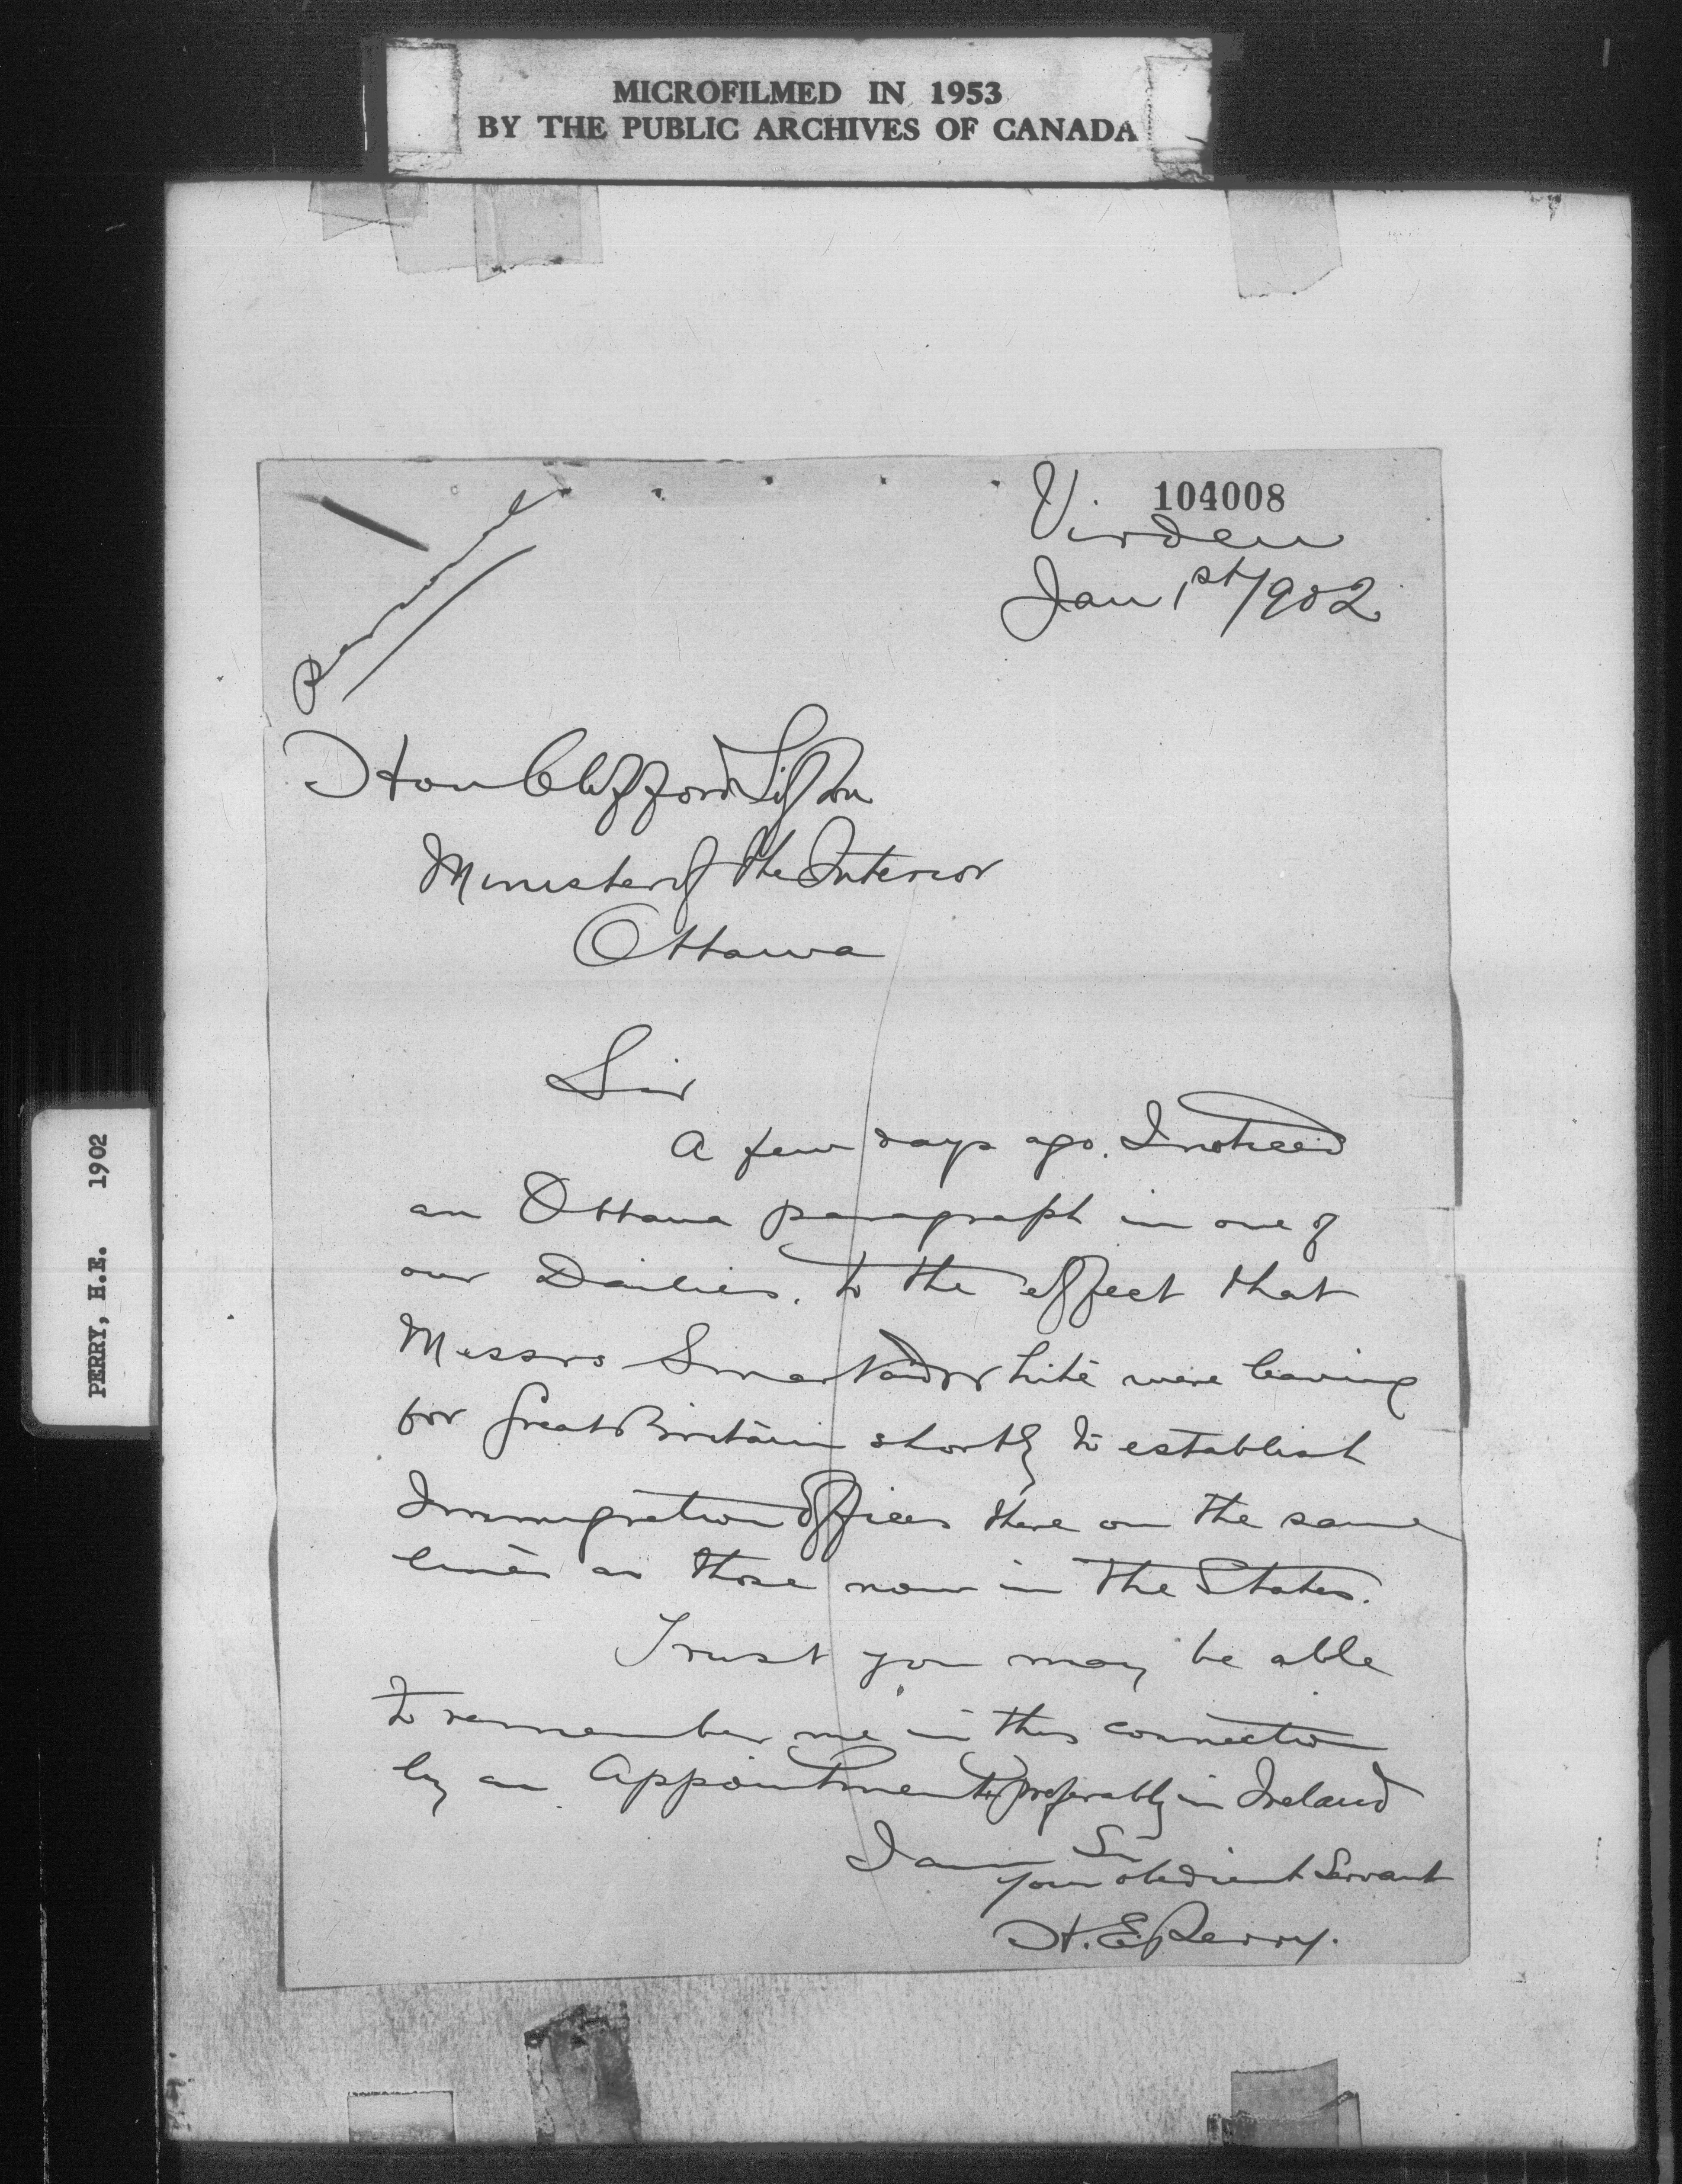 MICROFILMED IN 1953
BY THE PUBLIC ARCHIVES OF CANADA
PERRY, H.E. 1902
104008
Virden
Jan 1st/902
Personal
Hon Clifford Sifton
Minister of the Interior
Ottawa
Sir
A few days ago. I noticed
an Ottawa paragraph in one of
our Dailies. to the effect that
Messrs Smart and White were leaving
for Great Britain shortly to establish
Immigration Offices there on the same
lines as those now in the States.
Trust you may be able
to remember me in this connection
by an Appointment preferably in Ireland
I am Sir
your obedient Servant
H. E. Perry.